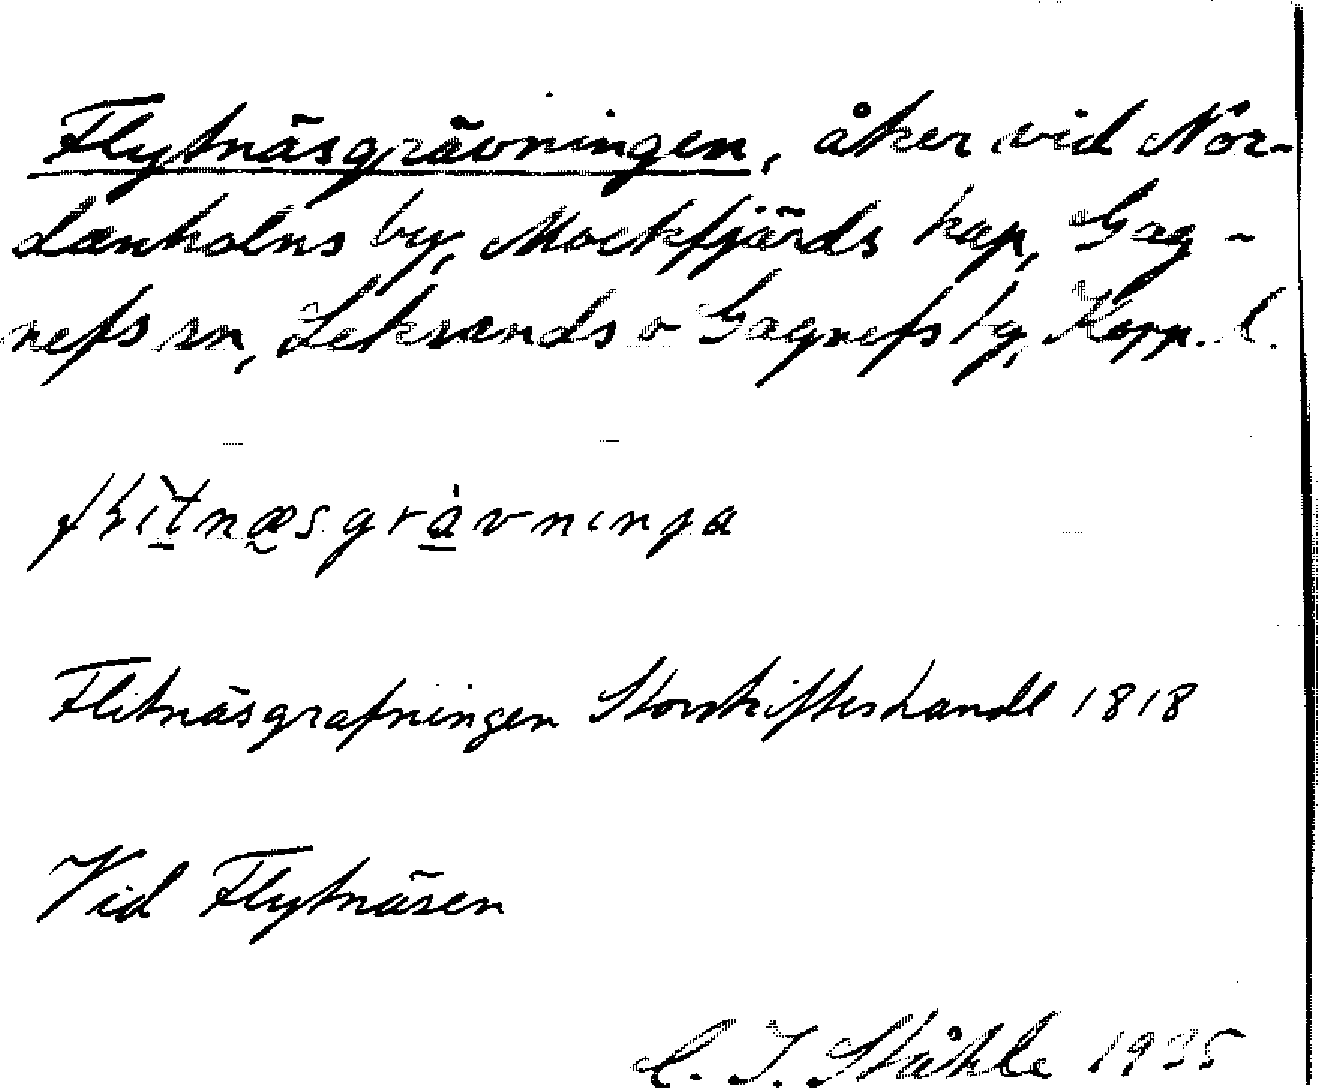 Flytnäsgrävningen, åker vid Nor-
danholns by, Mockfjärds kap, Gag-
nefs sn, Leksands o Gagnefs tg, Kopp. l.
Flitnäsgrafningen Storskifteshandl 1818
Vid Flytnäsen
C. I. Ståhle 1935